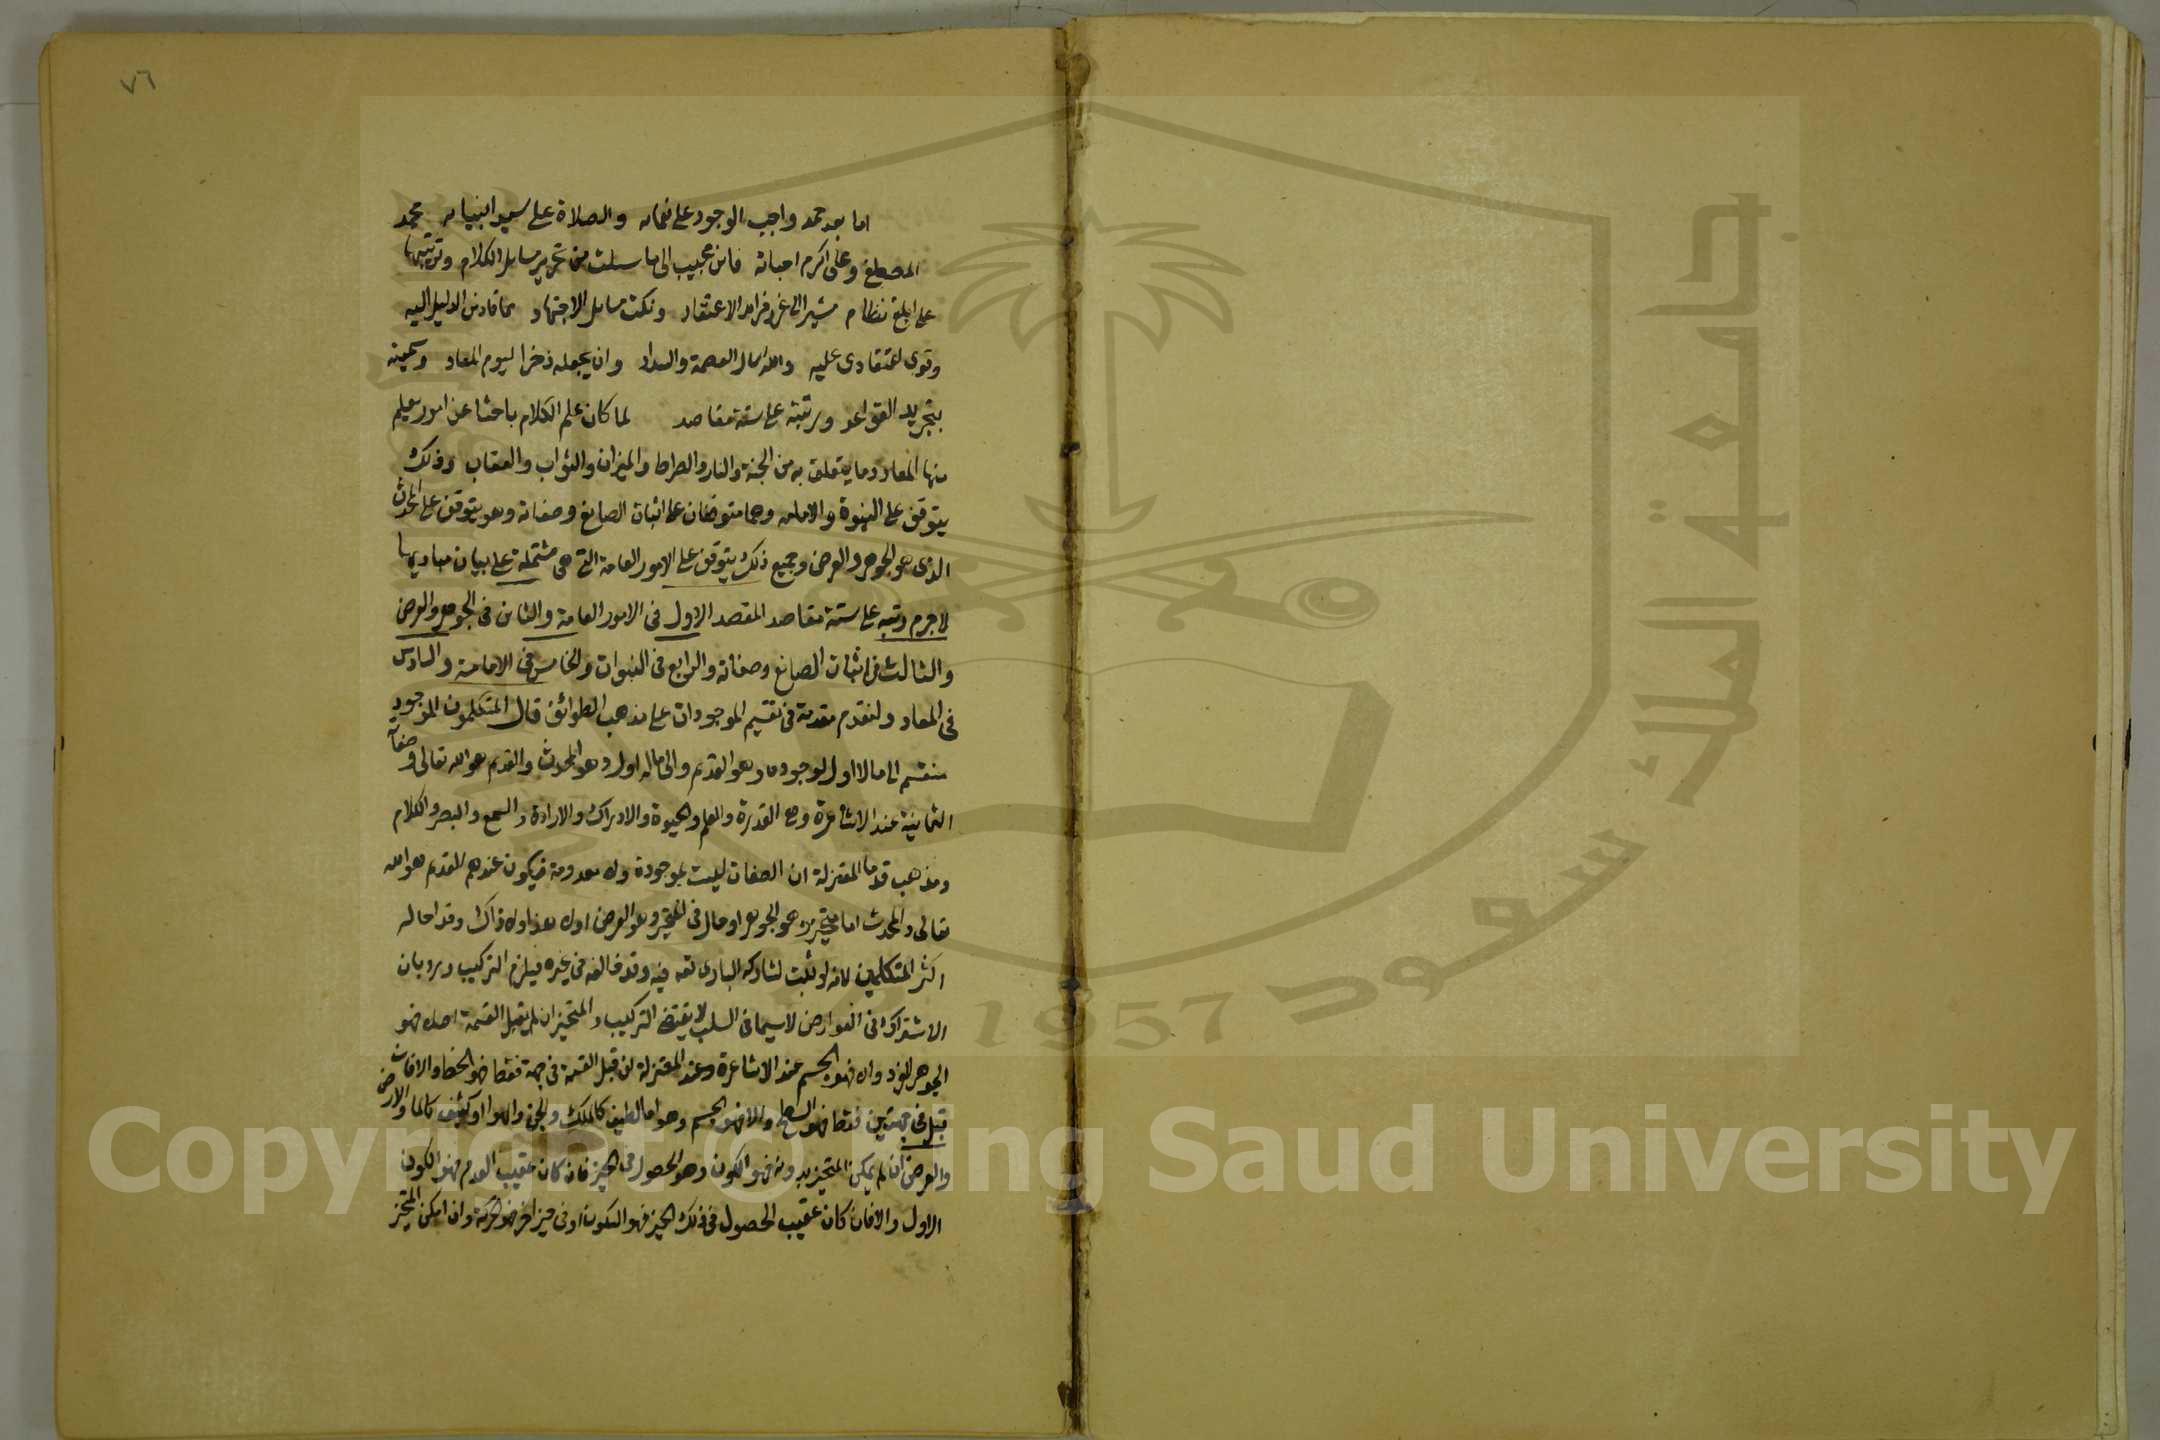 ٧٦
اما بعد حمد واجب الوجود على نعمائه والصلاة على سيد انبيائه محمد
المصطفى وعلى اكرم احبائه فانى مجيب الى ما سئلت من تحرير مسائل الكلام وترتيبها
على ابلغ نظام مشيرا الى غرر فرائد الاعتقاد ونكت مسائل الاجتهاد مما قادنى الدليل اليه
وقوى اعتقادى عليه والله اسال العصمة والسداد وان يجعله ذخرا ليوم المعاد وسميته
بتجريد العقائد ورتبته على ستة مقاصد لما كان علم الكلام باحثا عن امور يعلم
منها المعاد وما يتعلق به من الجنة والنار والصراط والميزان والثواب والعقاب وذلك
يتوقف على النبوة والامامه وهما متوقفان على اثبات الصانع وصفاته وهو يتوقف على المحدث
الذى هو الجوهر والعرض وجميع ذلك يتوقف على الامور العامة التى هى مشتملة على بيان مباديها
لا جرم رتبه على ستة مقاصد المقصد الاول فى الامور العامة والثانى فى الجوهر والعرض
والثالث فى اثبات الصانع وصفاته والرابع فى النبوات والخامس فى الامامة والسادس
فى المعاد ولنقدم مقدمة فى تقسيم الموجودات على مذهب الطوائف قال المتكلمون الموجود
منقسم الى ما لا اول لوجوده وهو القديم والى ماله اول وهو المحدث والقديم هو الله تعالى وصفاته
الثمانية عند الاشاعرة وهى القدرة والعلم والحيوة والادراك والارادة والسمع والبصر والكلام
ومذهب قدما المعتزلة ان الصفات ليست بموجودة ولا معدومة فيكون عندهم القديم هو الله
تعالى والمحدث اما متحيز وهو الجوهر او حال فى المتحيز وهو العرض اولا هذا ولا ذاك وقد احاله
اكثر المتكلمين لانه لو ثبت لشاركه البارى تعه فيه وقد خالفه فى غيره فيلزم التركيب ورد بان
الاشتراك فى العوارض لاسيما فى السلب لا يقتضى التركيب والمتحيز ان لم يقبل القسمة اصلا فهو
الجوهر الفرد والا فهو الجسم عند الاشاعرة وعند المعتزلة ان قبل القسمة فى جهة فقط فهو الخط والافان
قبل فى جهتين فقط فهو السطح والا فهو الجسم وهو اما لطيف كالملك والجن والهوا او كثيف كالما والارض
والعرض ان لم يمكن المتحيز بدونه فهو الكون وهو الحصول فى الحيز فان كان عقيب العدم فهو الكون
الاول والافان كان عقيب الحصول فى ذلك الحيز فهو السكون او فى حيز اخر فهو الحركة وان امكن المتحيز
جامعة الملك سعود
1957
Copyright © King Saud University